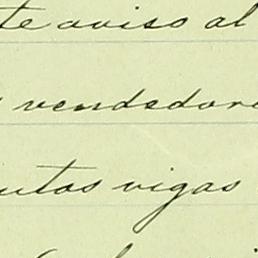 te aviso al
vendedore
utas vigas